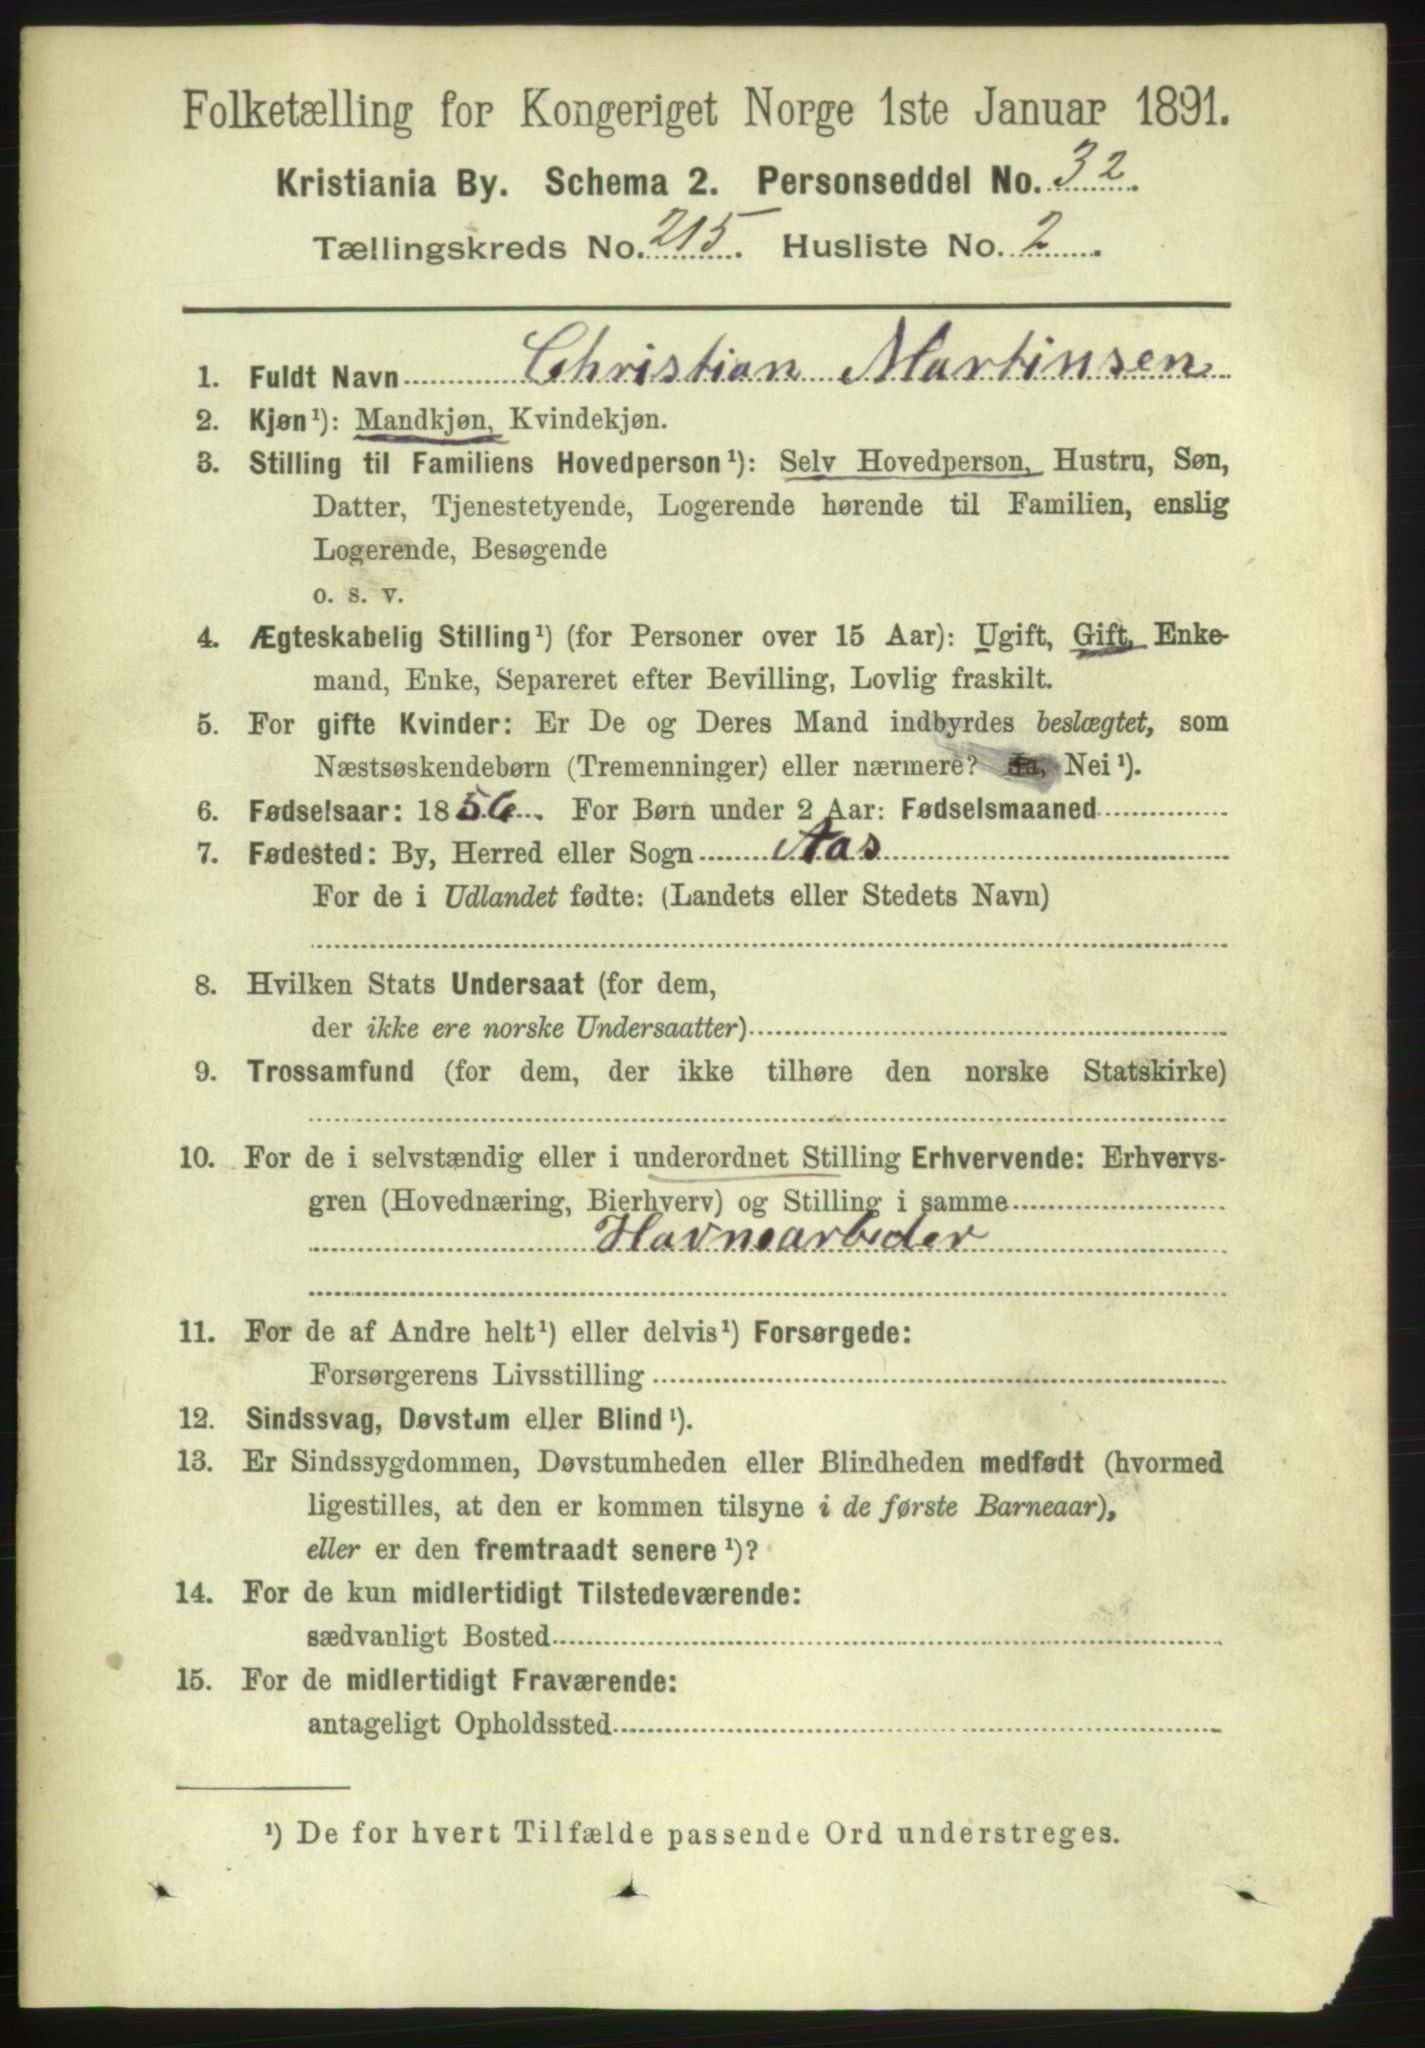 Folketælling for Kongeriget Norge 1ste Januar 1891.
Kristiania By. Schema 2. Personseddel No. 32.
Tællingskreds No. 215. Husliste No. 2.
1. Fuldt Navn Christian Martinsen
2. Kjøn¹): Mandkjøn, Kvindekjøn.
3. Stilling til Familiens Hovedperson¹): Selv Hovedperson, Hustru, Søn,
Datter, Tjenestetyende, Logerende hørende til Familien, enslig
Logerende, Besøgende
o. s. v.
4. Ægteskabelig Stilling¹) (for Personer over 15 Aar): Ugift, Gift, Enke-
mand, Enke, Separeret efter Bevilling, Lovlig fraskilt.
5. For gifte Kvinder: Er De og Deres Mand indbyrdes beslægtet, som
Næstsøskendebørn (Tremenninger) eller nærmere? Ja, Nei¹).
6. Fødselsaar: 1856. For Børn under 2 Aar: Fødselsmaaned
7. Fødested: By, Herred eller Sogn Aas
For de i Udlandet fødte: (Landets eller Stedets Navn)
8. Hvilken Stats Undersaat (for dem,
der ikke ere norske Undersaatter)
9. Trossamfund (for dem, der ikke tilhøre den norske Statskirke)
10. For de i selvstændig eller i underordnet Stilling Erhvervende: Erhvervs-
gren (Hovednæring, Bierhverv) og Stilling i samme
Havnearbeider
11. For de af Andre helt¹) eller delvis¹) Forsørgede:
Forsørgerens Livsstilling
12. Sindssvag, Døvstum eller Blind¹).
13. Er Sindssygdommen, Døvstumheden eller Blindheden medfødt (hvormed
ligestilles, at den er kommen tilsyne i de første Barneaar),
eller er den fremtraadt senere¹)?
14. For de kun midlertidigt Tilstedeværende:
sædvanligt Bosted
15. For de midlertidigt Fraværende:
antageligt Opholdssted
¹) De for hvert Tilfælde passende Ord understreges.